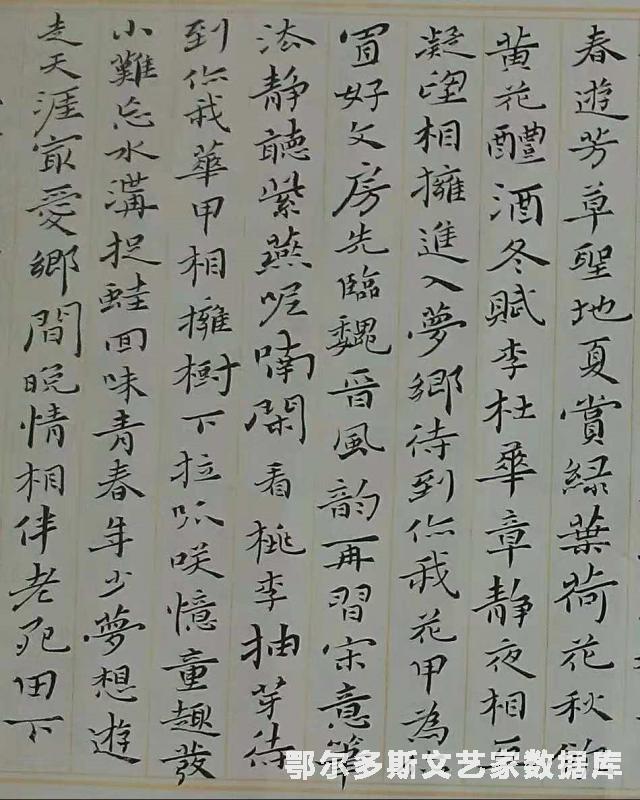 春遊芳草聖地夏賞緑葉荷花秋
黄花醴酒冬賦李杜華章静夜相互
凝望相擁進入夢鄉待到你我花甲為
置好文房先臨魏晉風韵再習宋意筆
法静聽紫燕呢喃閑看桃李抽芽待
到你我華甲相擁樹下拉呱咲憶童趣發
小難忘水溝捉蛙回味青春年少夢想遊
走天涯最愛鄉間晚情相伴老死田下
鄂尔多斯文艺家数据库